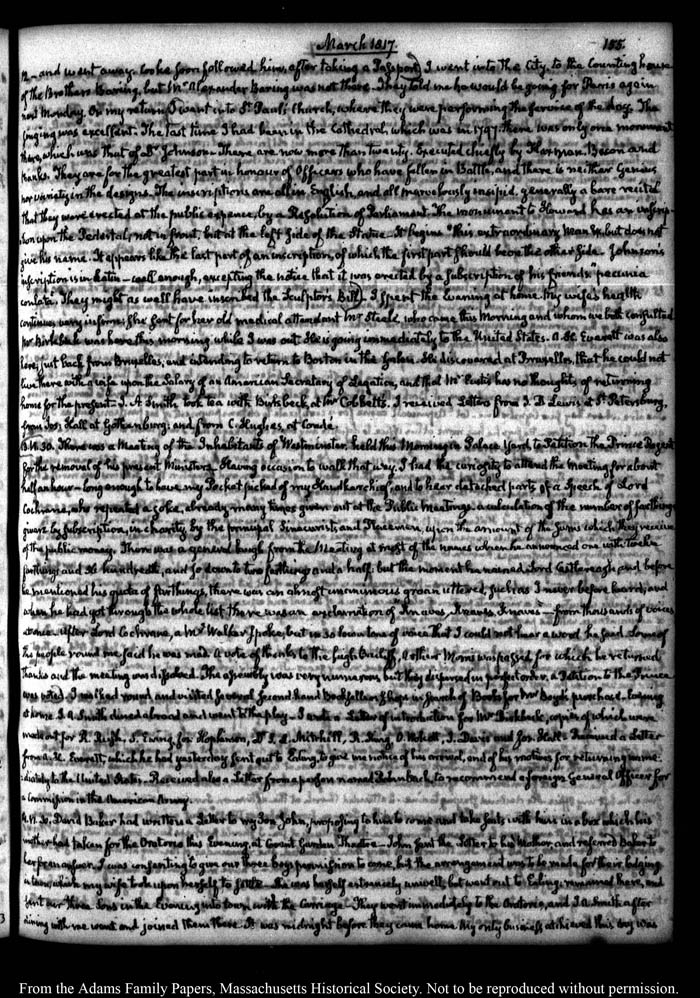 March 1817. 155.
12 — and went away. Cooke soon followed him, after taking a Passport I went into the City, to the Counting house
of the Brothers Baring, but Mr Alexander Baring was not there. They told me he would be going for Paris again
next Monday. On my return I went into St Paul's Church, where they were performing the service of the day. The
singing was excellent. The last time I had been in the Cathedral, which was in 1797. there was only one monument
there, which was that of Dr Johnson. There are now more than twenty. Executed chiefly by Flaxman, Bacon and
They are for the greatest part in honour of Officers who have fallen in Battle, and there is neither Genius
nor variety in the designs. The inscriptions are all in English, and all marvelously insipid, generally a bare recital
that they were erected at the public expence, by a Resolution of Parliament. The monument to Howard has an inscrip-
tion upon the Pedestal, not in front, but at the left side of the Statue. It begins "this extraordinary man" &c, but does not
give his name. It appears like the last part of an inscription, of which the first part should be on the other side. Johnson's
inscription is in Latin — well enough, excepting the notice that it was erected by a subscription of his friends "pecunia
conlata." They might as well have inscribed the Sculptors Bill. I spent the Evening at home. My wife's health
continues very infirm. She sent for her old medical attendant Mr Steele, who came this Morning and whom we both consulted
Mr Birkbeck was here this morning while I was out. He is going immediately to the United States. A. H. Everett was also
here, just back from Bruxelles, and intending to return to Boston in the Galen. He discovered at Brussells, that he could not
live there with a wife upon the Salary of an American Secretary of Legation, and that Mr Eustis has no thoughts of returning
home for the present. J. A. Smith took tea with Birkbeck, at Mr Cobbett's. I received Letters from J. D Lewis at St Petersburg,
from Jos. Hall at Gothenburg, and from C. Hughes, at Condé.
13. VI. 30. There was a Meeting of the Inhabitants of Westminster, held this Morning in Palace Yard to Petition the Prince Regent
for the removal of his present Ministers. Having occasion to walk that way, I had the curiosity to attend the meeting for about
half an hour — long enough to have my Pocket picked of my Handkerchief, and to hear detached parts of a Speech of Lord
Cochrane, who repeated a joke, already many times given out at the Public Meetings. a calculation of the number of farthings
given by subscription, in charity by the principal Sinecurists and Placemen, upon the amount of the sums which they receive
of the public money. There was a general laugh from the Meeting at most of the names when he announced one with
farthings and the hundredth, and so down to two farthings and a half: but the moment he named Lord Castlereagh, and before
he mentioned his quota of farthings, there was an almost unanimous groan uttered, such as I never before heard, and
when he had got through the whole list there was an exclamation of Knaves, Knaves, Knaves — from thousands of voices
at once. After Lord Cochrane, a Mr Walker spoke, but in so low a tone of voice that I could not hear a word he said. Some of
the people round me said he was mad. A vote of thanks to the high Bailiff, Arthur Morris was passed for which he returned
thanks and the meeting was dissolved. The assembly was very numerous but they dispersed in perfect order. a Petition to the Prince
was voted. I walked round and visited several second hand Booksellers shops in search of Books for Mr Boyd's purchase. Evening
at home. J. A. Smith dined abroad and went to the play. I wrote a Letter of introduction for Mr Birkbeck, copies of which were
made out for R. Rush, J. Ewing, Jos. Hopkinson, Dr S. L. Mitchill, R. King, J. Davis and Jos. Hall. I received a Letter
from A. H. Everett, which he had yesterday sent out to Ealing, to give me notice of his arrival, and of his motives for returning imme-
diately to the United States. Received also a Letter from a person named to recommend a foreign General Officer for
a Commission in the American Army.
14. VI. 30. David Baker had written a Letter to my Son John, proposing to him to come and take seats with him in a box which his
mother had taken for the Oratorio this Evening, at Covent Garden Theatre. John sent the Letter to his Mother, and referred Baker to
her for an answer. I was consenting to give our three boys permission to come, but the arrangement was to be made for their lodging
in town, which my wife took upon herself to settle. She was herself extremely unwell; but went out to Ealing; remained here, and
sent our three Sons in the Evening into town with the Carriage. They went immediately to the Oratorio, and J. A. Smith after
dining with me went and joined them there. It was midnight before they came home. My only business achieved this day was